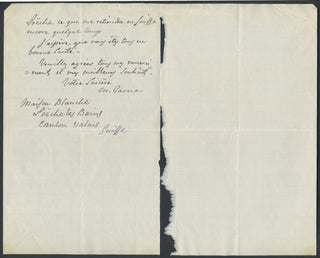 Loèche ce que me retiendra en Suisse
encore quelque temps
J'espère que vous êtes tous en
bonne santé -
Veuillez agréer tous mes remerci
-ments et mes meilleurs souhaits,
Votre sincère
M.
Maison Blanche
Loèche les Bains
Canton Valais
Suisse